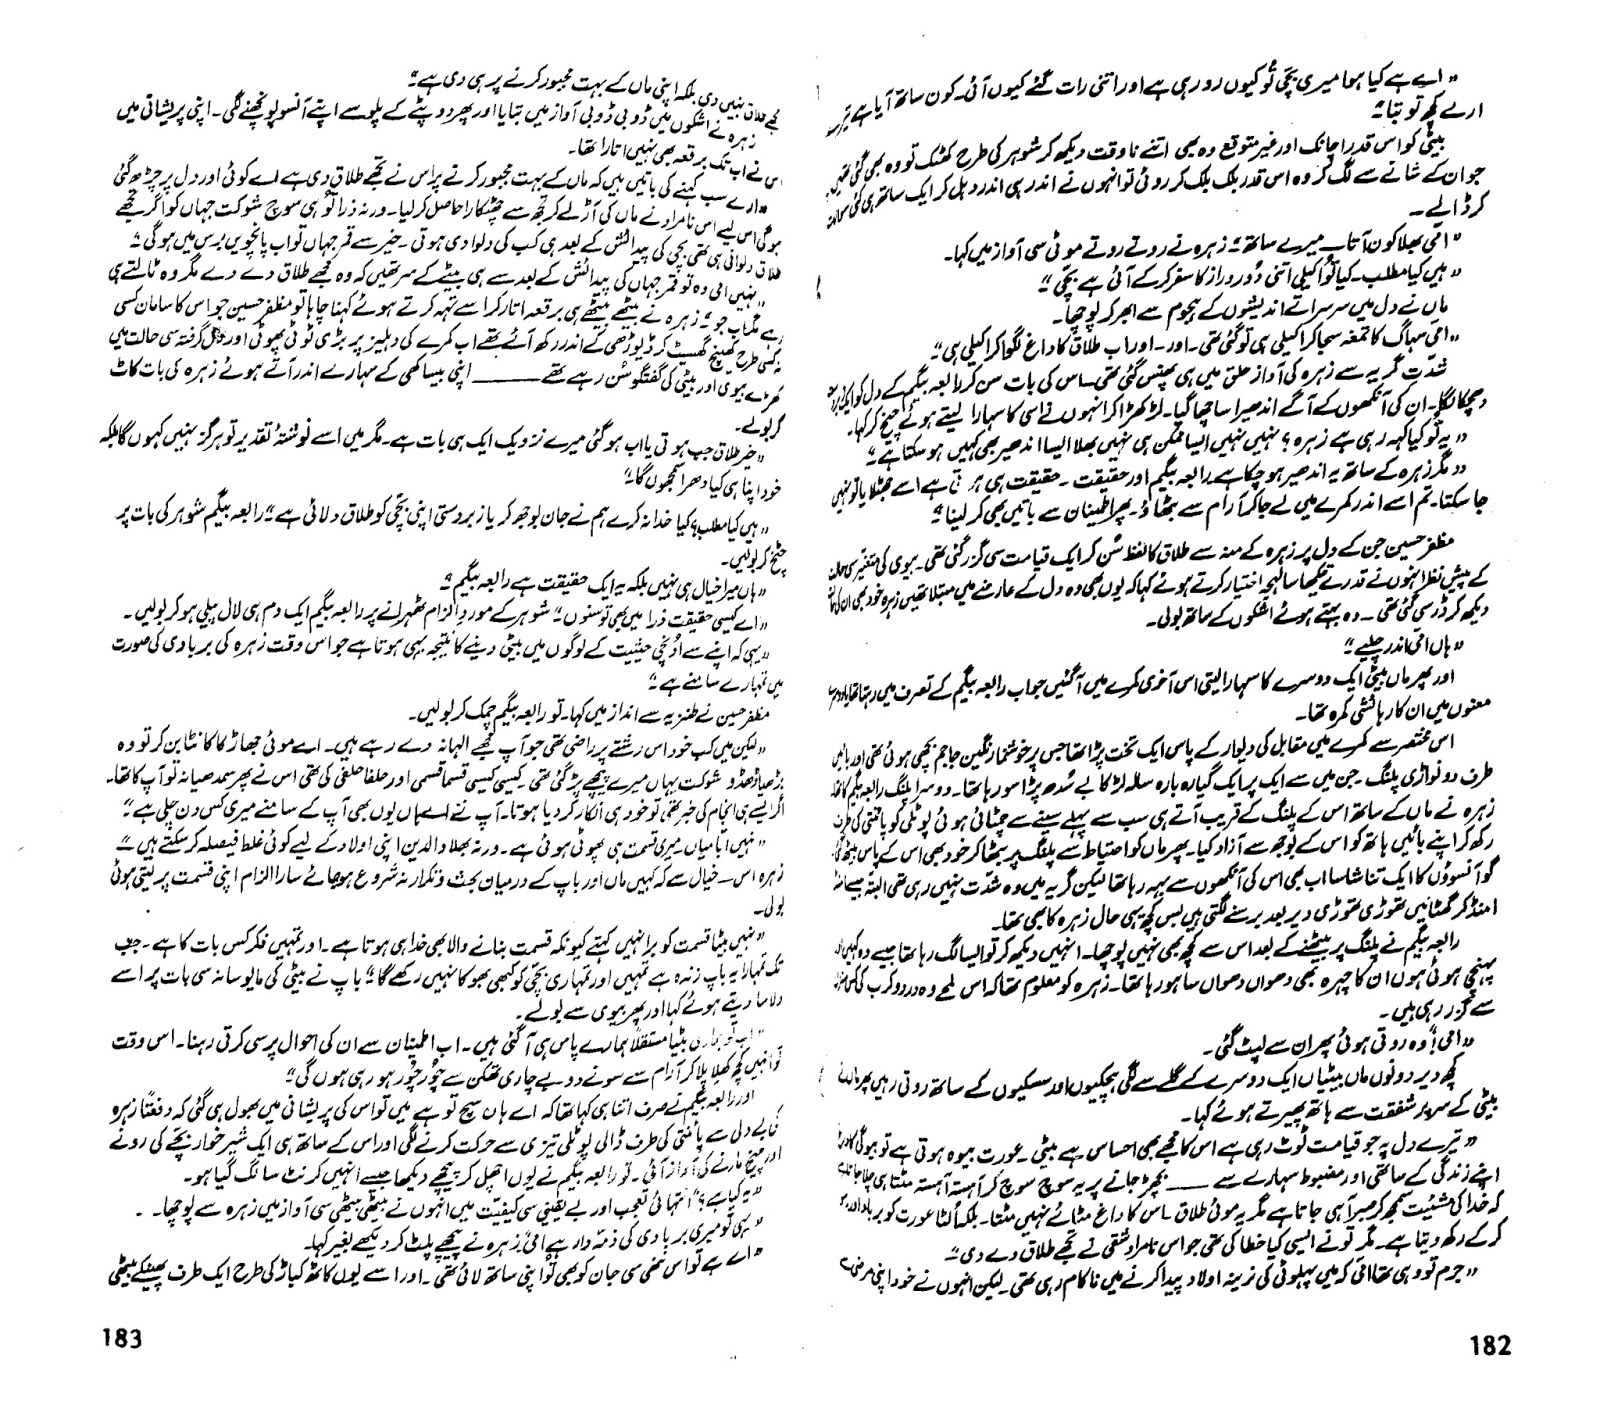 "اے ہے کیا ہوا میری بچی تُو کیوں رو رہی ہے اور اتنی رات گئے کیوں آئی۔ کون ساتھ آیا ہے تیرے
ارے کچھ تو بتا"
بیٹی کو اس قدر اچانک اور غیر متوقع وہ بھی اتنے ناوقت دیکھ کر شوہر کی طرح کھٹک تو وہ بھی گئی تھیں
جو ان کے شانے سے لگ کر وہ اس قدر بلک بلک کر روئی تو انہوں نے اندر ہی اندر دہل کر ایک ساتھ ہی کئی سوالات
کر ڈالے۔
"امی بھلا کون آتا میرے ساتھ" زہرہ نے روتے روتے موٹی سی آواز میں کہا۔
"ہیں کیا مطلب۔ کیا تُو اکیلی اتنی دُور دراز کا سفر کر کے آئی ہے بچی"
ماں نے دل میں سرسراتے اندیشوں کے ہجوم سے ابھر کر پوچھا۔
"امی سہاگ کا تمغہ سجا کر اکیلی ہی تو گئی تھی۔ اور۔ اور اب طلاق کا داغ لگوا کر اکیلی ہی"
شدّت گریہ سے زہرہ کی آواز حلق میں ہی پھنس گئی تھی۔ اس کی بات سن کر رابعہ بیگم کے دل کو ایک
دھچکا لگا۔ ان کی آنکھوں کے آگے اندھیرا سا چھا گیا۔ لڑکھڑا کر انہوں نے اسی کا سہارا لیتے ہوئے چیخ کر کہا۔
"یہ تُو کیا کہہ رہی ہے زہرہ؟ نہیں نہیں ایسا ممکن ہی نہیں بھلا ایسا اندھیر بھی کہیں ہو سکتا ہے"
"مگر زہرہ کے ساتھ یہ اندھیر ہو چکا ہے رابعہ بیگم اور حقیقت۔ حقیقت ہی ہوتی ہے اسے جھٹلایا تو نہیں
جا سکتا۔ تم اسے اندر کمرے میں لے جا کر آرام سے بٹھاؤ۔ پھر اطمینان سے باتیں بھی کر لینا"
مظفر حسین جن کے دل پر زہرہ کے منہ سے طلاق کا لفظ سُن کر ایک قیامت سی گزر گئی تھی۔ بیوی کی متغیر سی حالت
کے پیش نظر انہوں نے قدرے تیکھا سا لہجہ اختیار کرتے ہوئے کہا کہ یوں بھی وہ دل کے عارضے میں مبتلا تھیں زہرہ خود بھی ان کی حالت
دیکھ کر ڈر سی گئی تھی۔ وہ بہتے ہوئے اشکوں کے ساتھ بولی۔
"ہاں امی اندر چلیے"
اور پھر ماں بیٹی ایک دوسرے کا سہارا لیتی اس آخری کمرے میں آ گئیں جو اب رابعہ بیگم کے تصرف میں رہتا تھا یا دوسرے
معنوں میں ان کا رہائشی کمرہ تھا۔
اس مختصر سے کمرے میں مقابل کی دیوار کے پاس ایک تخت پڑا تھا جس پر خوشنما رنگین جاجم بچھی ہوئی تھی اور بائیں
طرف دو نواڑی پلنگ۔ جن میں سے ایک پر ایک گیارہ بارہ سالہ لڑکا بے سُدھ پڑا سو رہا تھا۔ دوسرا پلنگ رابعہ بیگم کا تھا
زہرہ نے ماں کے ساتھ اس کے پلنگ کے قریب آتے ہی سب سے پہلے سینے سے چمٹائی ہوئی پوٹلی کو پائنتی کی طرف
رکھ کر اپنے بائیں ہاتھ کو اس کے بوجھ سے آزاد کیا۔ پھر ماں کو احتیاط سے پلنگ پر بٹھا کر خود بھی اس کے پاس بیٹھ گئی
گو آنسوؤں کا ایک تانتا سا اب بھی اس کی آنکھوں سے بہہ رہا تھا لیکن گریہ میں وہ شدّت نہیں رہی تھی البتہ جیسے
امنڈ کر گھٹائیں تھوڑی تھوڑی دیر بعد برسنے لگتی ہیں بس کچھ یہی حال زہرہ کا بھی تھا۔
رابعہ بیگم نے پلنگ پر بیٹھنے کے بعد اس سے کچھ بھی نہیں پوچھا۔ انہیں دیکھ کر تو ایسا لگ رہا تھا جیسے وہ کہیں
پہنچی ہوئی ہوں ان کا چہرہ بھی دھواں دھواں سا ہو رہا تھا۔ زہرہ کو معلوم تھا کہ اس لمحے وہ درد و کرب کی کس منزل
سے گزر رہی ہیں۔
"امی" وہ روتی ہوئی پھر ان سے لپٹ گئی۔
کچھ دیر دونوں ماں بیٹیاں ایک دوسرے کے گلے سے لگی ہچکیوں اور سسکیوں کے ساتھ روتی رہیں پھر ماں نے
بیٹی کے سر پر شفقت سے ہاتھ پھیرتے ہوئے کہا۔
"تیرے دل پہ جو قیامت ٹوٹ رہی ہے اس کا مجھے بھی احساس ہے بیٹی۔ عورت بیوہ ہوتی ہے تو بیوگی کا درد
اپنے زندگی کے ساتھی اور مضبوط سہارے سے ——— بچھڑ جانے پر یہ سوچ سوچ کر آہستہ آہستہ مٹتا ہی چلا جاتا ہے
کہ خدا کی مشیئت سمجھ کر صبر آ ہی جاتا ہے مگر یہ موئی طلاق۔ اس کا داغ مٹائے نہیں مٹتا۔ بلکہ اُلٹا عورت کو برباد اور
کر کے رکھ دیتا ہے۔ مگر تو نے ایسی کیا خطا کی تھی جو اس نامراد شقی نے تجھے طلاق دے دی"
"جرم تو وہی تھا امی کہ میں پہلوٹی کی نرینہ اولاد پیدا کرنے میں ناکام رہی تھی۔ لیکن انہوں نے خود اپنی مرضی سے
182
مجھے طلاق نہیں دی بلکہ اپنی ماں کے بہت مجبور کرنے پر ہی دی ہے"
زہرہ نے اشکوں میں ڈوبی ڈوبی آواز میں بتایا اور پھر دوپٹے کے پلو سے اپنے آنسو پونچھنے لگی۔ اپنی پریشانی میں
اس نے اب تک برقعہ بھی نہیں اتارا تھا۔
"ارے سب کہنے کی باتیں ہیں کہ ماں کے بہت مجبور کرنے پر اس نے تجھے طلاق دی ہے اے کوئی اور دل پر چڑھ گئی
ہو گی اس لیے اس نامراد نے ماں کی آڑ لے کر تجھ سے چھٹکارا حاصل کر لیا۔ ورنہ ذرا تُو ہی سوچ شوکت جہاں کو اگر تجھے
طلاق دلوانی ہی تھی بچی کی پیدائش کے بعد ہی کب کی دلوا دی ہوتی۔ خیر سے قمر جہاں تو اب پانچویں برس میں ہو گی"
"نہیں امی وہ تو قمر جہاں کی پیدائش کے بعد سے ہی بیٹے کے سر تھیں کہ وہ مجھے طلاق دے دے مگر وہ ٹالتے ہی
رہے مگر اب جو" زہرہ نے بیٹھے بیٹھے ہی برقعہ اتار کر اسے تہہ کرتے ہوئے کہنا چاہا تو مظفر حسین جو اس کا سامان کسی
نہ کسی طرح کھینچ گھسیٹ کر ڈیوڑھی کے اندر رکھ آئے تھے اب کمرے کی دہلیز پر بڑی ٹوٹی پھوٹی اور دل گرفتہ سی حالت میں
کھڑے بیوی اور بیٹی کی گفتگو سُن رہے تھے ——— اپنی بیساکھی کے سہارے اندر آتے ہوئے زہرہ کی بات کاٹ
کر بولے۔
"خیر طلاق جب ہوتی یا اب ہو گئی میرے نزدیک ایک ہی بات ہے۔ مگر میں اسے نوشتۂ تقدیر تو ہرگز نہیں کہوں گا بلکہ
خود اپنا ہی کیا دھرا سمجھوں گا"
"ہیں کیا مطلب؟ کیا خدا نہ کرے ہم نے جان بوجھ کر یا زبردستی اپنی بچی کو طلاق دلائی ہے" رابعہ بیگم شوہر کی بات پر
چٹخ کر بولیں۔
"ہاں میرا خیال ہی نہیں بلکہ یہ ایک حقیقت ہے رابعہ بیگم"
"اے کیسی حقیقت ذرا میں بھی تو سنوں" شوہر کے مورد الزام ٹھہرانے پر رابعہ بیگم ایک دم ہی لال پیلی ہو کر بولیں۔
"یہی کہ اپنے سے اُونچی حیثیت کے لوگوں میں بیٹی دینے کا نتیجہ یہی ہوتا ہے جو اس وقت زہرہ کی بربادی کی صورت
میں تمہارے سامنے ہے"
مظفر حسین نے طنزیہ سے انداز میں کہا۔ تو رابعہ بیگم چمک کر بولیں۔
"لیکن میں کب خود اس رشتے پر راضی تھی جو آپ مجھے الہانہ دے رہے ہیں۔ اے موئی جھاڑ کا کانٹا بن کر تو وہ
بڑھیا ڈھڈو شوکت جہاں میرے پیچھے پڑ گئی تھی۔ کیسی کیسی قسما قسمی اور حلفا حلفی کی تھی اس نے پھر سمدھیانہ تو آپ کا تھا۔
اگر ایسے ہی انجام کی خبر تھی تو خود ہی انکار کر دیا ہوتا۔ آپ نے اے ہاں یوں بھی آپ کے سامنے میری کس دن چلی ہے"
"نہیں ابا میاں۔ میری قسمت ہی پھوٹی ہوئی ہے۔ ورنہ بھلا والدین اپنی اولاد کے لیے کوئی غلط فیصلہ کر سکتے ہیں"
زہرہ اس۔ خیال سے کہ کہیں ماں اور باپ کے درمیان بحث و تکرار نہ شروع ہو جائے سارا الزام اپنی قسمت پر لیتی ہوئی
بولی۔
"نہیں بیٹا قسمت کو برا نہیں کہتے کیونکہ قسمت بنانے والا بھی خدا ہی ہوتا ہے۔ اور تمہیں فکر کس بات کا ہے۔ جب
تک تمہارا یہ باپ زندہ ہے تمہیں اور تمہاری بچی کو کبھی بھوکا نہیں رکھے گا" باپ نے بیٹی کی مایوسانہ سی بات پر اسے
دلاسا دیتے ہوئے کہا اور پھر بیوی سے بولے۔
"اب تو ہماری بٹیا مستقلاً ہمارے پاس ہی آ گئی ہیں۔ اب اطمینان سے ان کی احوال پرسی کرتی رہنا۔ اس وقت
تو انہیں کچھ کھلا پلا کر آرام سے سونے دو بے چاری تھکن سے چُور چُور ہو رہی ہوں گی"
اور رابعہ بیگم نے صرف اتنا ہی کہا تھا کہ اے ہاں سچ تو ہے میں تو اس کی پریشانی میں بھول ہی گئی کہ دفعتاً زہرہ
کی بے دلی سے پائنتی کی طرف ڈالی پوٹلی تیزی سے حرکت کرنے لگی اور اس کے ساتھ ہی ایک شیر خوار بچے کی رونے
اور چیخ مارنے کی آواز آئی۔ تو رابعہ بیگم نے یوں اچھل کر پیچھے دیکھا جیسے انہیں کرنٹ سا لگ گیا ہو۔
"یہ کیا ہے؟" انتہائی تعجب اور بے یقینی سی کیفیت میں انہوں نے بیٹھی بیٹھی سی آواز میں زہرہ سے پوچھا۔
"یہی تو میری بربادی کی ذمّہ دار ہے امی" زہرہ نے پیچھے پلٹ کر دیکھے بغیر کہا۔
"اے ہے تو اس ننھی سی جان کو بھی تُو اپنی ساتھ لائی تھی۔ اور اسے یوں کاٹھ کباڑ کی طرح ایک طرف پھینکے بیٹھی
183